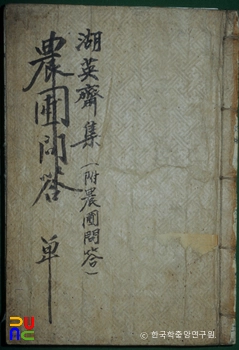 湖英齋集(附農圃問答)
農圃問答 單
PUAC
© 한국학중앙연구원